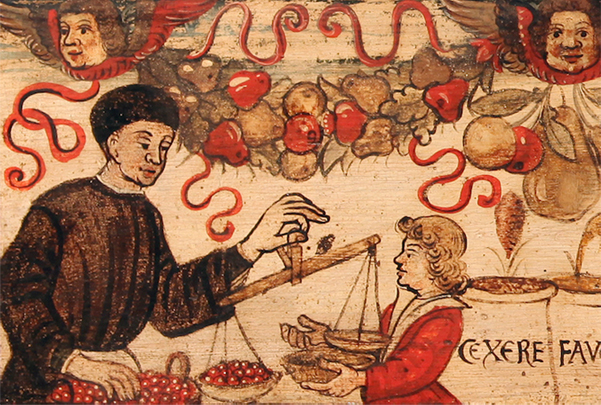 CEXERE FAV